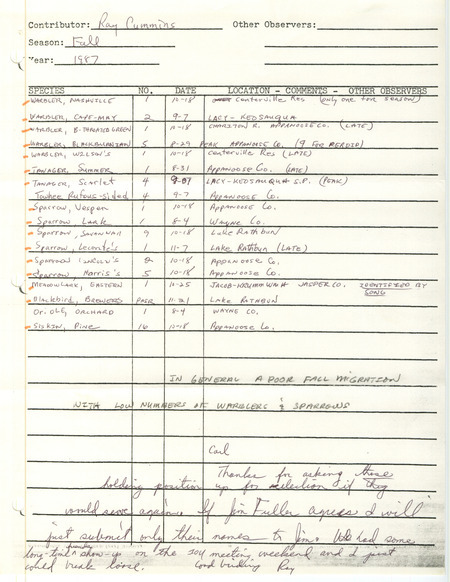 Contributor: Ray Cummins Other Observers:
Season: Fall
Year: 1987
SPECIES NO. DATE LOCATION - COMMENTS - OTHER OBSERVERS
WARBLER, NASHVILLE 1 10-18 Centerville Res (only one for season)
WARBLER, CAPE-MAY 2 9-7 LACY-KEOSAUQUA
WARBLER, B-THROATED GREEN 1 10-18 CHARITON R. APPANOOSE CO. (LATE)
WARBLER, BLACKBURNIAN 5 8-29 PEAK APPANOOSE Co. (9 FOR PERIOD)
WARBLER, WILSON'S 1 10-18 Centerville Res (LATE)
TANAGER, SUMMER 1 8-31 APPANOOSE Co. (LATE)
TANAGER, Scarlet 4 9-07 LACY-KEOSAUQUA S.P. (PEAK)
Towhee Rufous-sided 4 9-7 APPANOOSE Co.
Sparrow, Vesper 1 10-18 APPANOOSE Co.
Sparrow, Lark 1 8-4 WAYNE Co.
Sparrow, SAVANNAH 9 10-18 Lake RATHBUN
Sparrow, Leconte's 1 11-7 LAKE RATHBUN (LATE)
SPARROW LINCOLN'S 2 10-18 APPANOOSE Co.
Sparrow, Harris's 5 10-18 APPANOOSE Co.
MEADOWLARK, EASTERN 1 10-25 JACOB-KRUMM JASPER CO. IDENTIFIED BY SONG
Blackbird, BREWERS PAIR 11-21 LAKE RATHBUN
ORIOLE, ORCHARD 1 8-4 WAYNE CO.
SISKIN, PINE 16 10-18 APPANOOSE Co.
IN GENERAL A POOR FALL MIGRATION
WITH LOW NUMBERS OF WARBLERS & SPARROWS
Carl
Thanks for asking those
holding position up for selection if they
would serve again. If Jim Fuller agrees I will
just submit only their names to Jim. We had some
long-time family show-up on the IOU meeting weekend and I just
could break loose. Good birding Ray